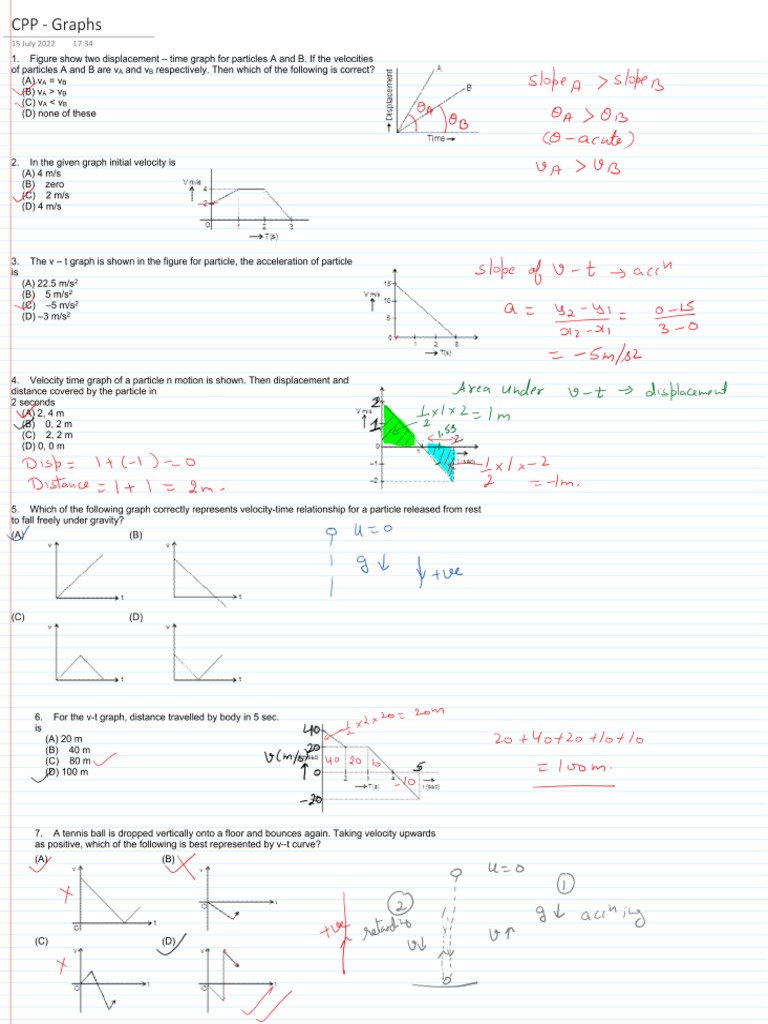 CPP - Graphs
15 July 2022 17:34
1. Figure show two displacement – time graph for particles A and B. If the velocities
of particles A and B are vA and vB respectively. Then which of the following is correct?
(A) vA = vB
(B) vA > vB
(C) vA < vB
(D) none of these
Displacement
A
B
θA
θB
Time
slope A > slope B
θA > θB
(θ - acute)
vA > vB
2. In the given graph initial velocity is
(A) 4 m/s
(B) zero
(C) 2 m/s
(D) 4 m/s
V m/s
4
2
0 1 2 3
T(s)
3. The v – t graph is shown in the figure for particle, the acceleration of particle
is
(A) 22.5 m/s²
(B) 5 m/s²
(C) –5 m/s²
(D) –3 m/s²
V m/s
15
10
5
0
1 2 3
T(s)
slope of v-t → accn
a = y2-y1/x2-x1 = 0-15/3-0
= -5m/s2
4. Velocity time graph of a particle n motion is shown. Then displacement and
distance covered by the particle in
2 seconds
(A) 2, 4 m
(B) 0, 2 m
(C) 2, 2 m
(D) 0, 0 m
Disp = 1+(-1) = 0
Distance = 1+1 = 2m.
V m/s
2
1
0
-1
-2
1
2
Area under v-t → displacement
1/2 x1x2 = 1m
1/2 x1x-2
= -1m.
5. Which of the following graph correctly represents velocity-time relationship for a particle released from rest
to fall freely under gravity?
(A) (B)
v t v t
(C) (D)
v t v t
u=0
g↓
↓+ve
6. For the v-t graph, distance travelled by body in 5 sec.
is
(A) 20 m
(B) 40 m
(C) 80 m
(D) 100 m
v(m/s)
40
20
0
-20
1/2 x2x20 = 20m
40 20 10
-10
5
T(s)
20+40+20+10+10
= 100m.
7. A tennis ball is dropped vertically onto a floor and bounces again. Taking velocity upwards
as positive, which of the following is best represented by v–t curve?
(A) (B)
v t v t
(C) (D)
v t v t
+ve
u=0
1
g↓
v↑
2
v↓